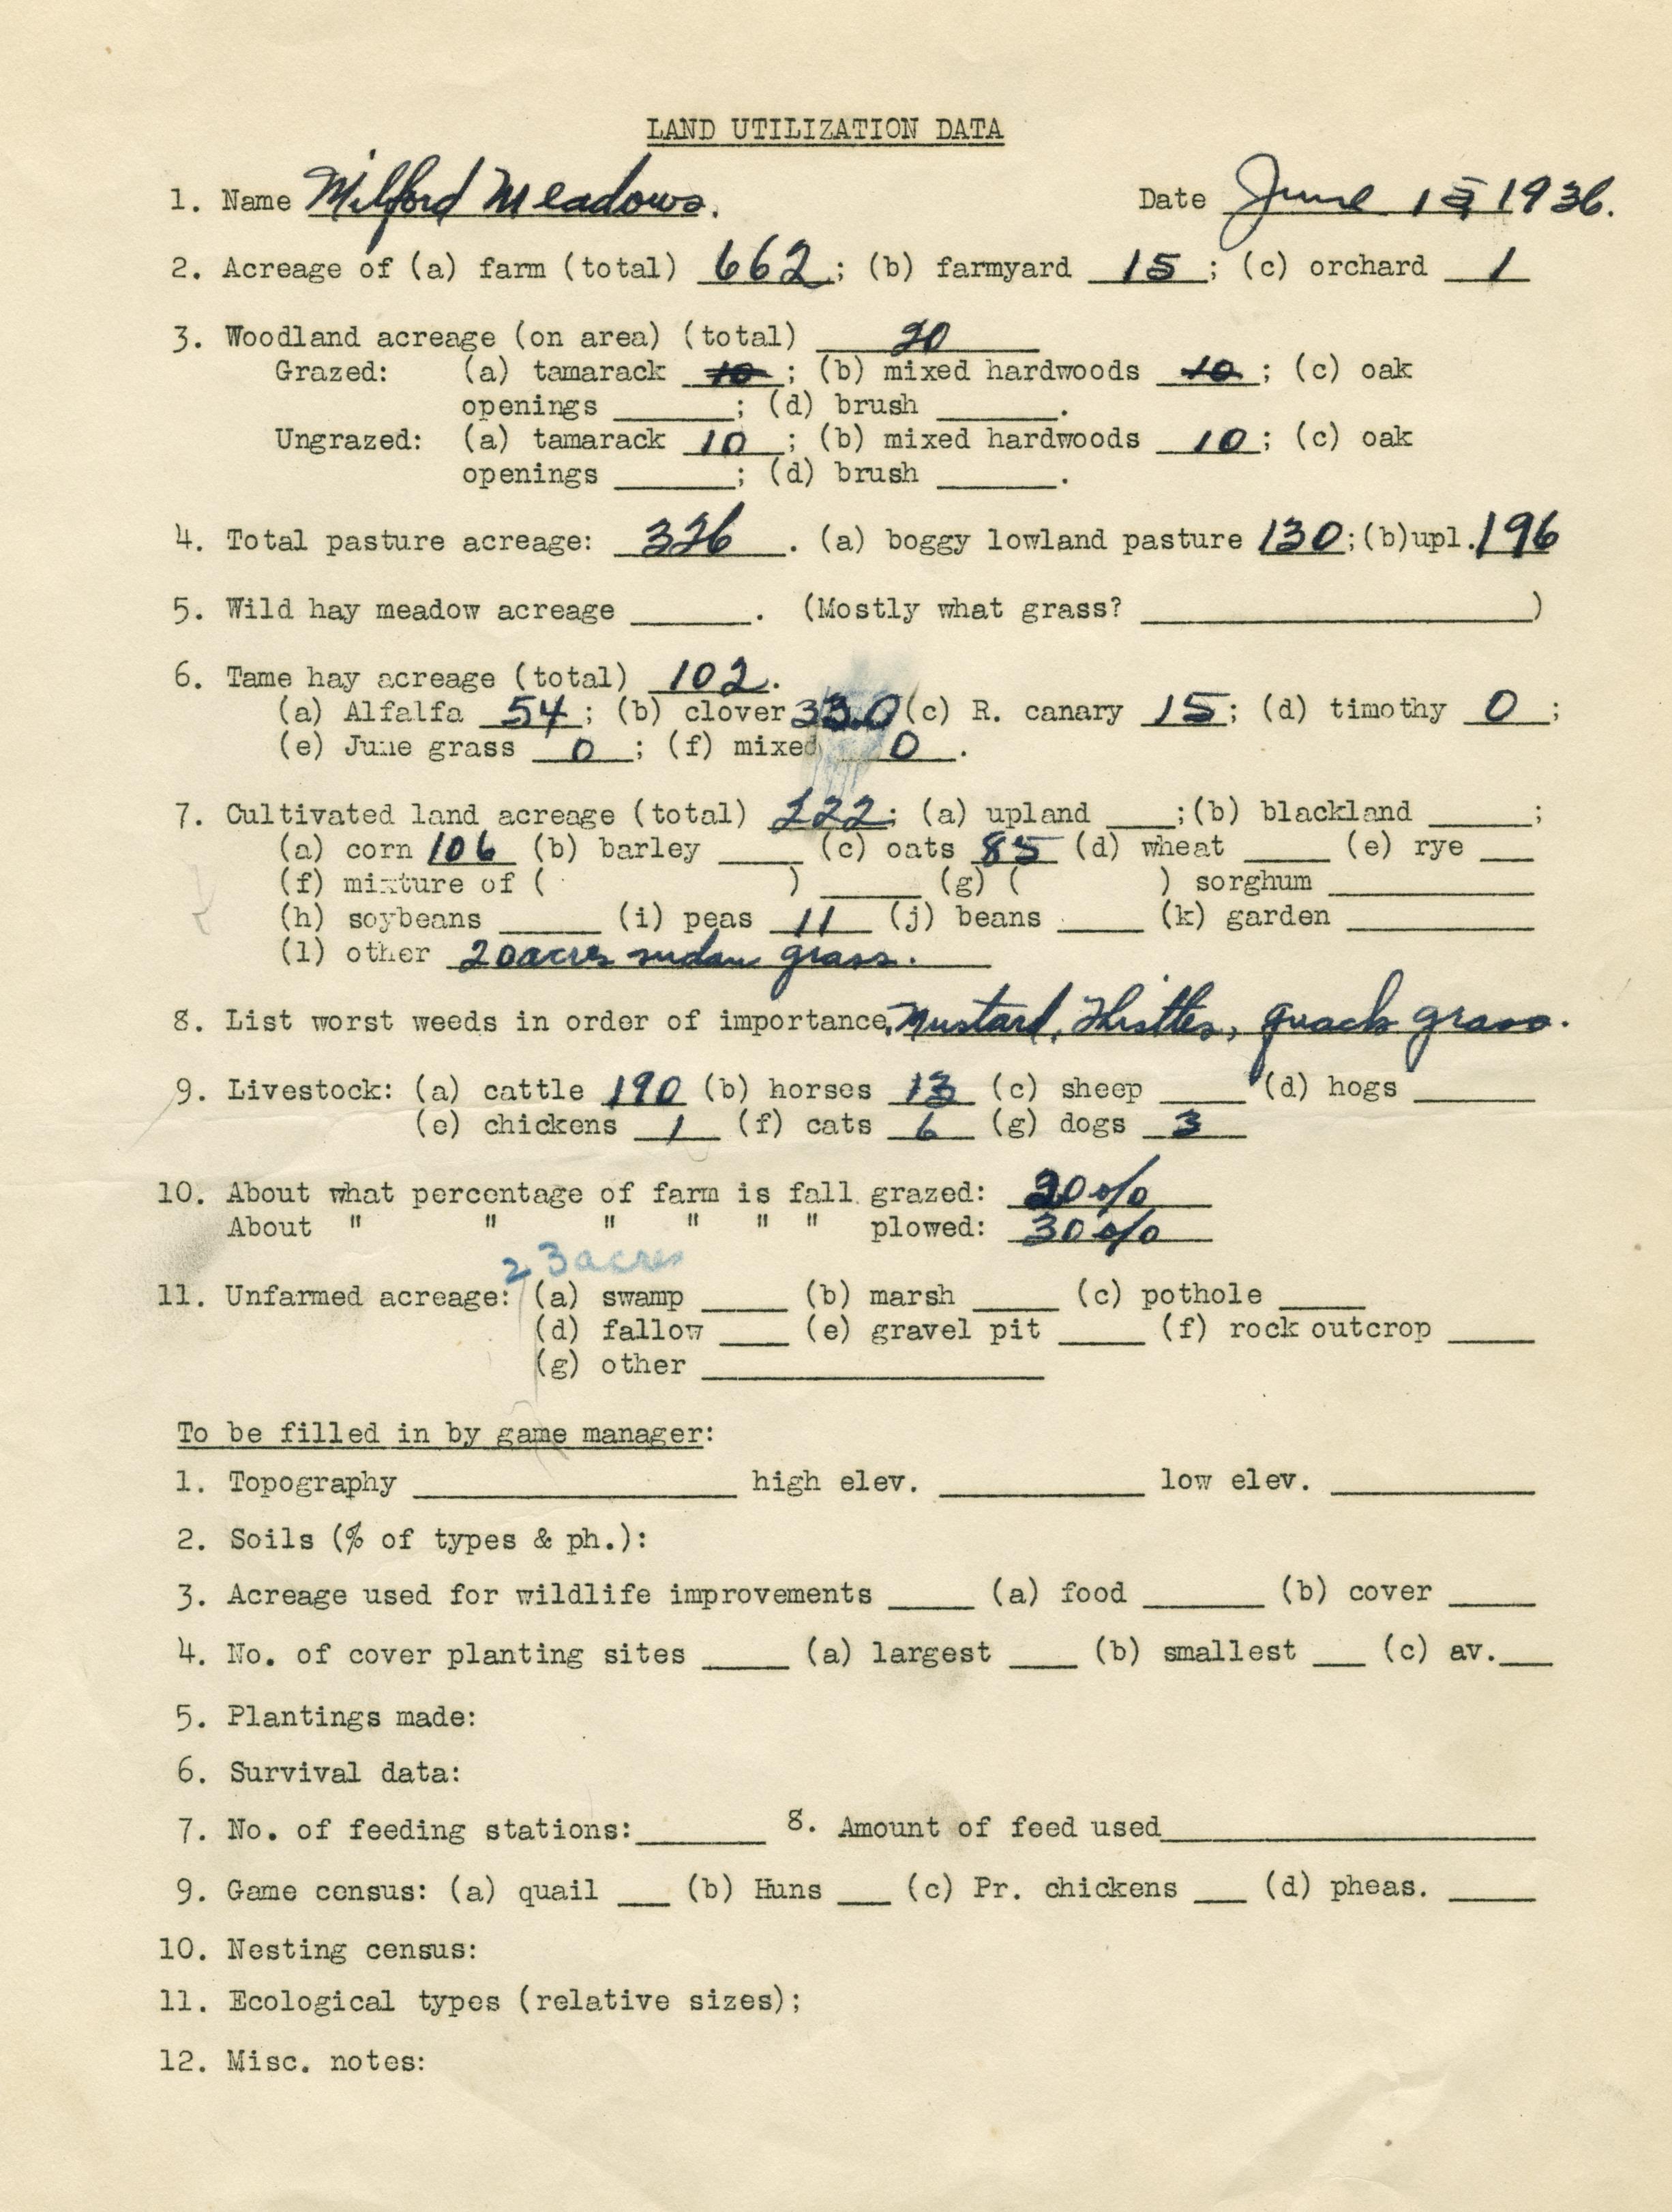 LAND UTILIZATION DATA
1. Name Milford Meadows. Date June 15 1936.
2. Acreage of (a) farm (total) 662; (b) farmyard 15; (c) orchard 1
3. Woodland acreage (on area) (total) 20
Grazed: (a) tamarack 10; (b) mixed hardwoods 10; (c) oak
openings ______; (d) brush ______.
Ungrazed: (a) tamarack 10; (b) mixed hardwoods 10; (c) oak
openings ______; (d) brush ______.
4. Total pasture acreage: 326. (a) boggy lowland pasture 130; (b) upl. 196
5. Wild hay meadow acreage ______. (Mostly what grass? ______)
6. Tame hay acreage (total) 102.
(a) Alfalfa 54; (b) clover 33 (c) R. canary 15; (d) timothy 0;
(e) June grass 0; (f) mixed 0.
7. Cultivated land acreage (total) 222; (a) upland ____; (b) blackland ______;
(a) corn 106 (b) barley _____ (c) oats 85 (d) wheat _____ (e) rye ___
(f) mixture of ( ) ______ (g) ( ) sorghum ______
(h) soybeans ______ (i) peas 11 (j) beans _____ (k) garden ______
(l) other 20 acres sudan grass.
8. List worst weeds in order of importance, Mustard, Thistles, quack grass.
9. Livestock: (a) cattle 190 (b) horses 13 (c) sheep _____ (d) hogs ______
(e) chickens 1 (f) cats 6 (g) dogs 3
10. About what percentage of farm is fall grazed: 20%
About " " " " " " plowed: 30%
23 acres
11. Unfarmed acreage: (a) swamp _____ (b) marsh _____ (c) pothole _____
(d) fallow ____ (e) gravel pit _____ (f) rock outcrop _____
(g) other ______
To be filled in by game manager:
1. Topography ______ high elev. ______ low elev. ______
2. Soils (% of types & ph.):
3. Acreage used for wildlife improvements _____ (a) food ______ (b) cover _____
4. No. of cover planting sites _____ (a) largest ____ (b) smallest ___ (c) av.___
5. Plantings made:
6. Survival data:
7. No. of feeding stations:______ 8. Amount of feed used______
9. Game census: (a) quail ___ (b) Huns ___ (c) Pr. chickens ___ (d) pheas. _____
10. Nesting census:
11. Ecological types (relative sizes);
12. Misc. notes: